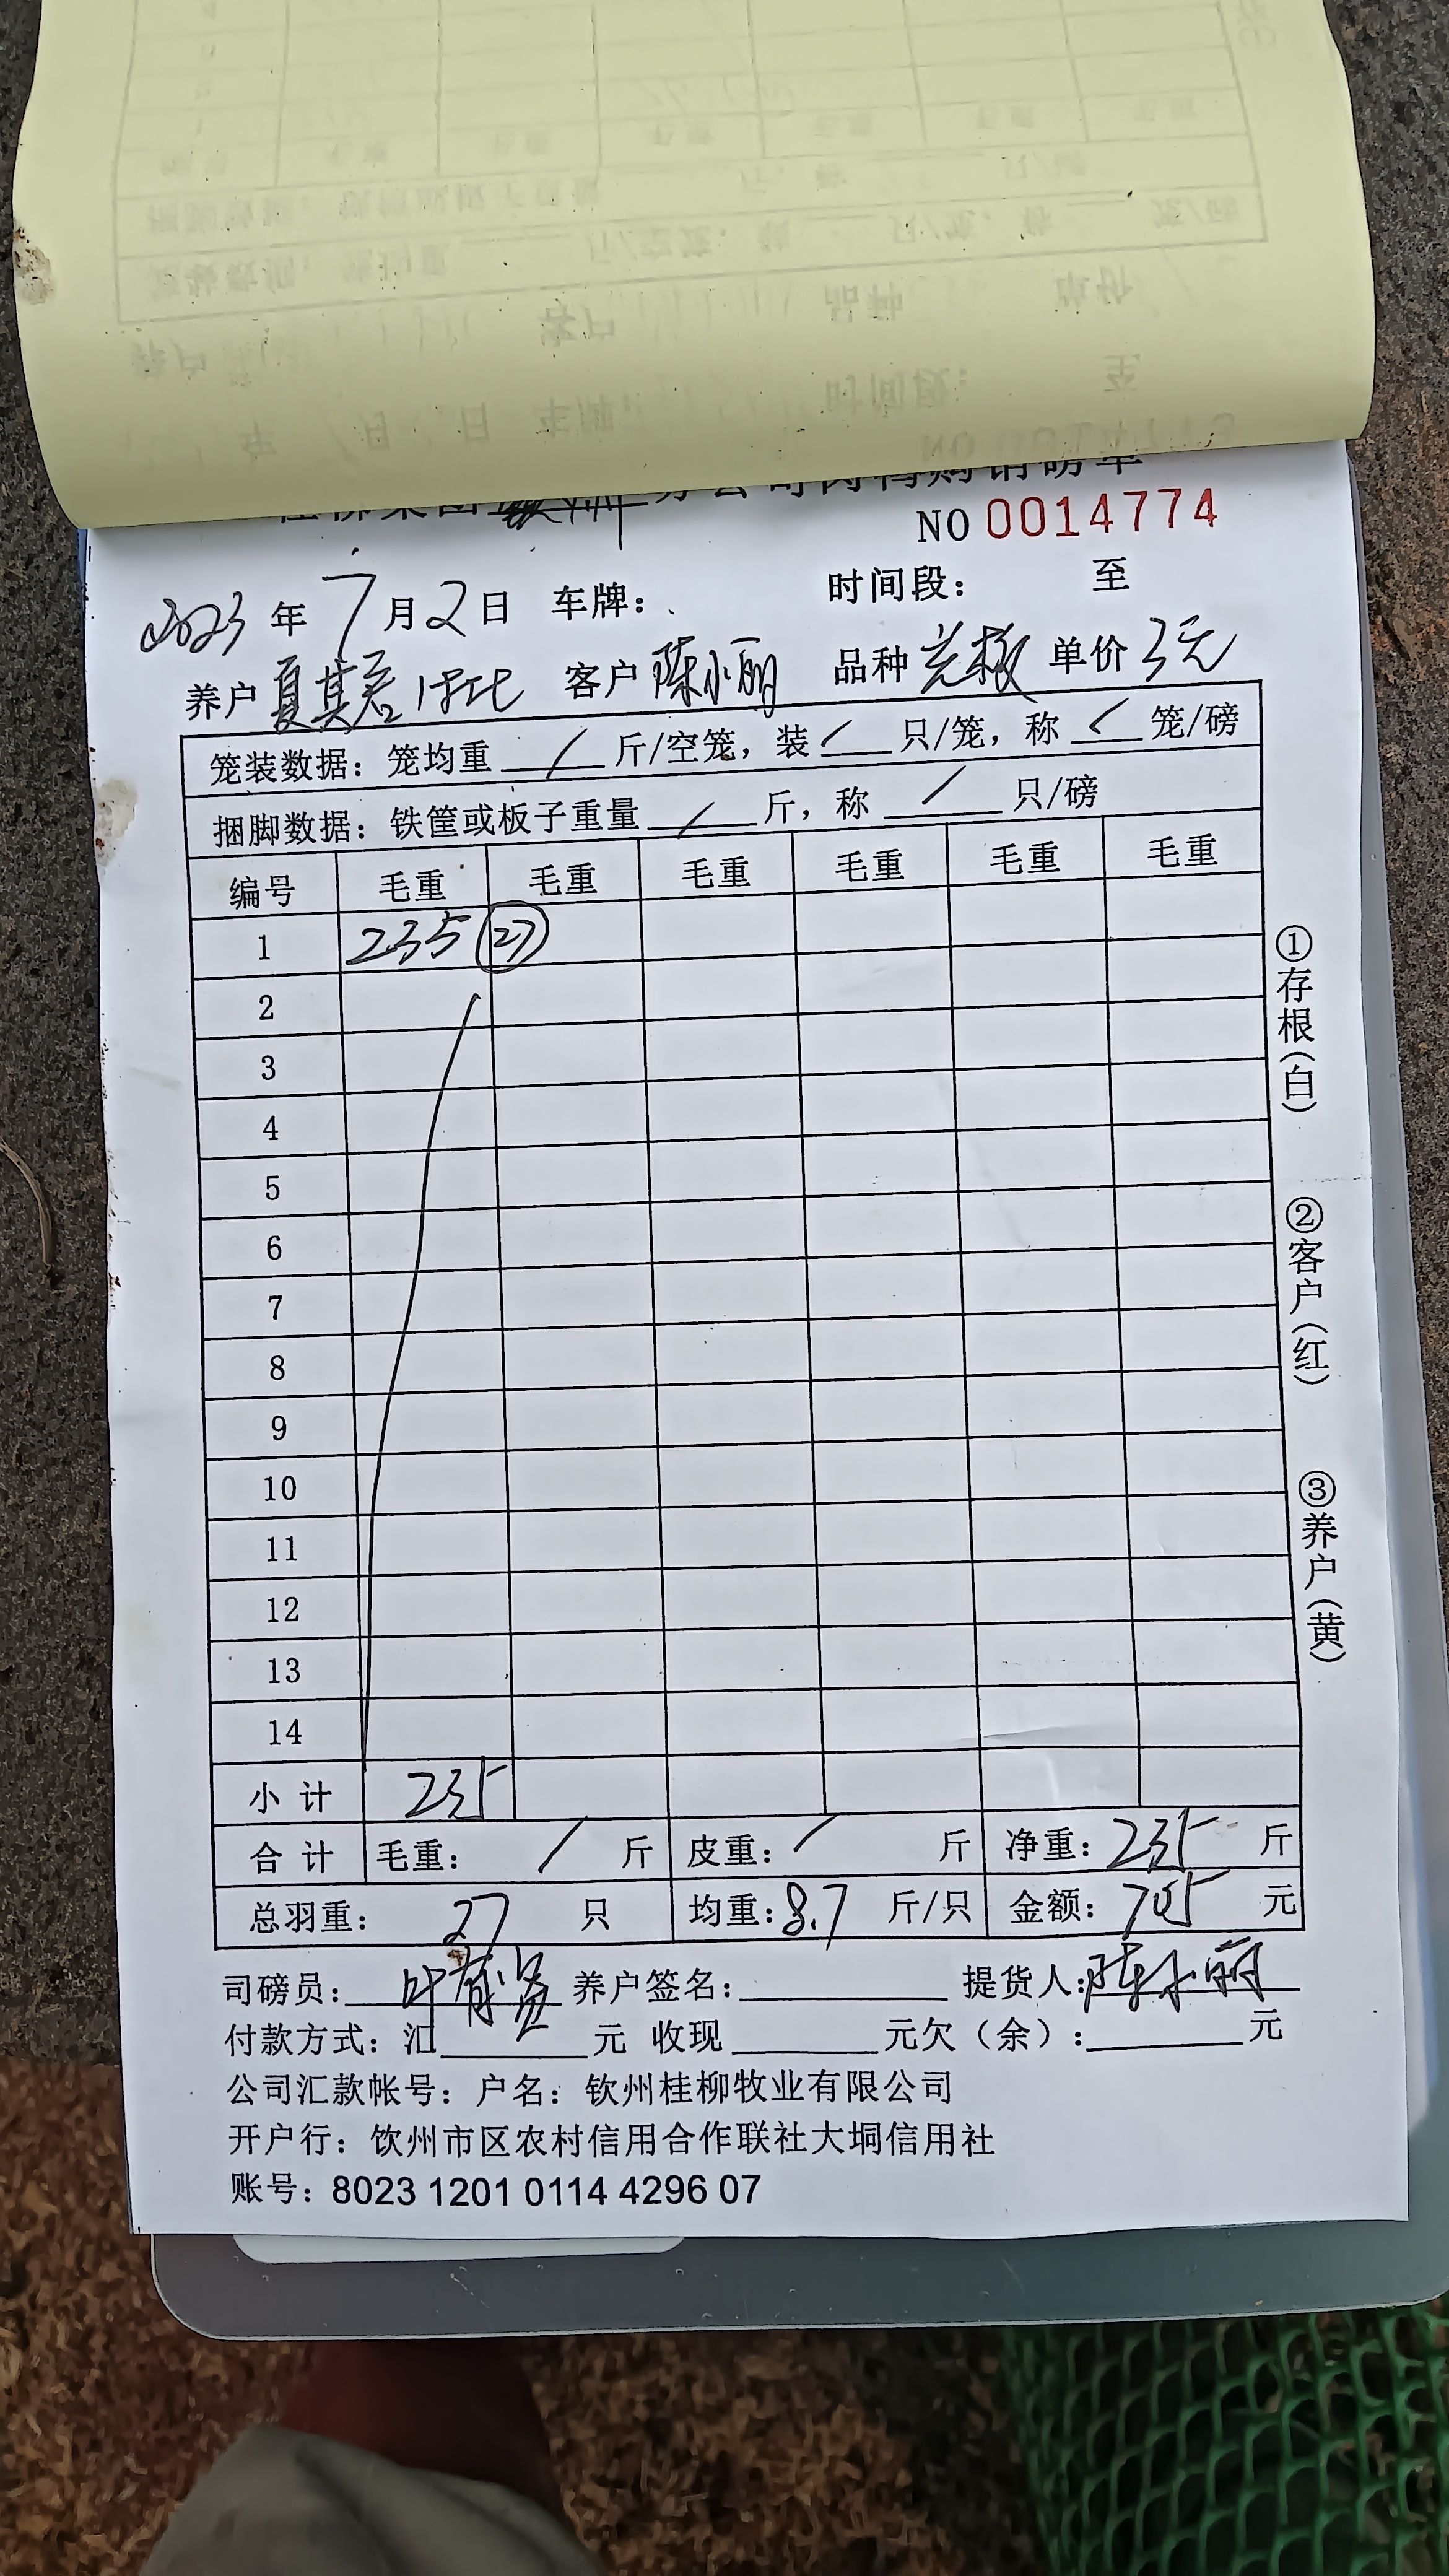 分公司肉鸭购销磅单
NO 0014774
2023年7月2日 车牌： 时间段： 至
养户 夏其君 客户 陈小丽 品种 单价 3元
笼装数据：笼均重 / 斤/空笼，装 / 只/笼，称 / 笼/磅
捆脚数据：铁筐或板子重量 / 斤，称 / 只/磅
编号 毛重 毛重 毛重 毛重 毛重 毛重
1 235 27
2
3
4
5
6
7
8
9
10
11
12
13
14
小计 235
合计 毛重： / 斤 皮重： / 斤 净重：235 斤
总羽重： 27 只 均重：8.7 斤/只 金额：705 元
司磅员：叶 养户签名： 提货人：陈小丽
付款方式：汇 元 收现 元欠（余）： 元
公司汇款帐号：户名：钦州桂柳牧业有限公司
开户行：饮州市区农村信用合作联社大垌信用社
账号：8023 1201 0114 4296 07
①存根（白）
②客户（红）
③养户（黄）